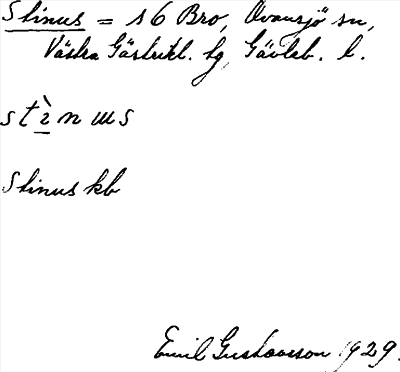 Stinus = s 6 Bro, Ovansjö sn,
Västra Gästrikl. hg, Gävleb. l.
stìnus
Stinus kb
Emil Gustavsson 1929.